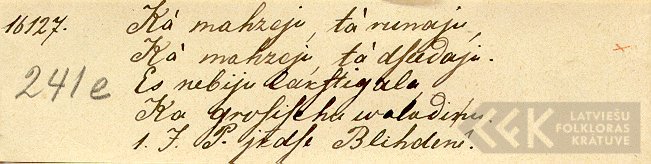 16127. Kà mahzeju, tà runaju,
Kà mahzeju, tà dseedaju.
241e Es nebiju lakstigala
Ka grosischu walodiņu.
1. J. P. jz dse Blihdenē.
LATVIEŠU
FOLKLORAS
KRĀTUVE